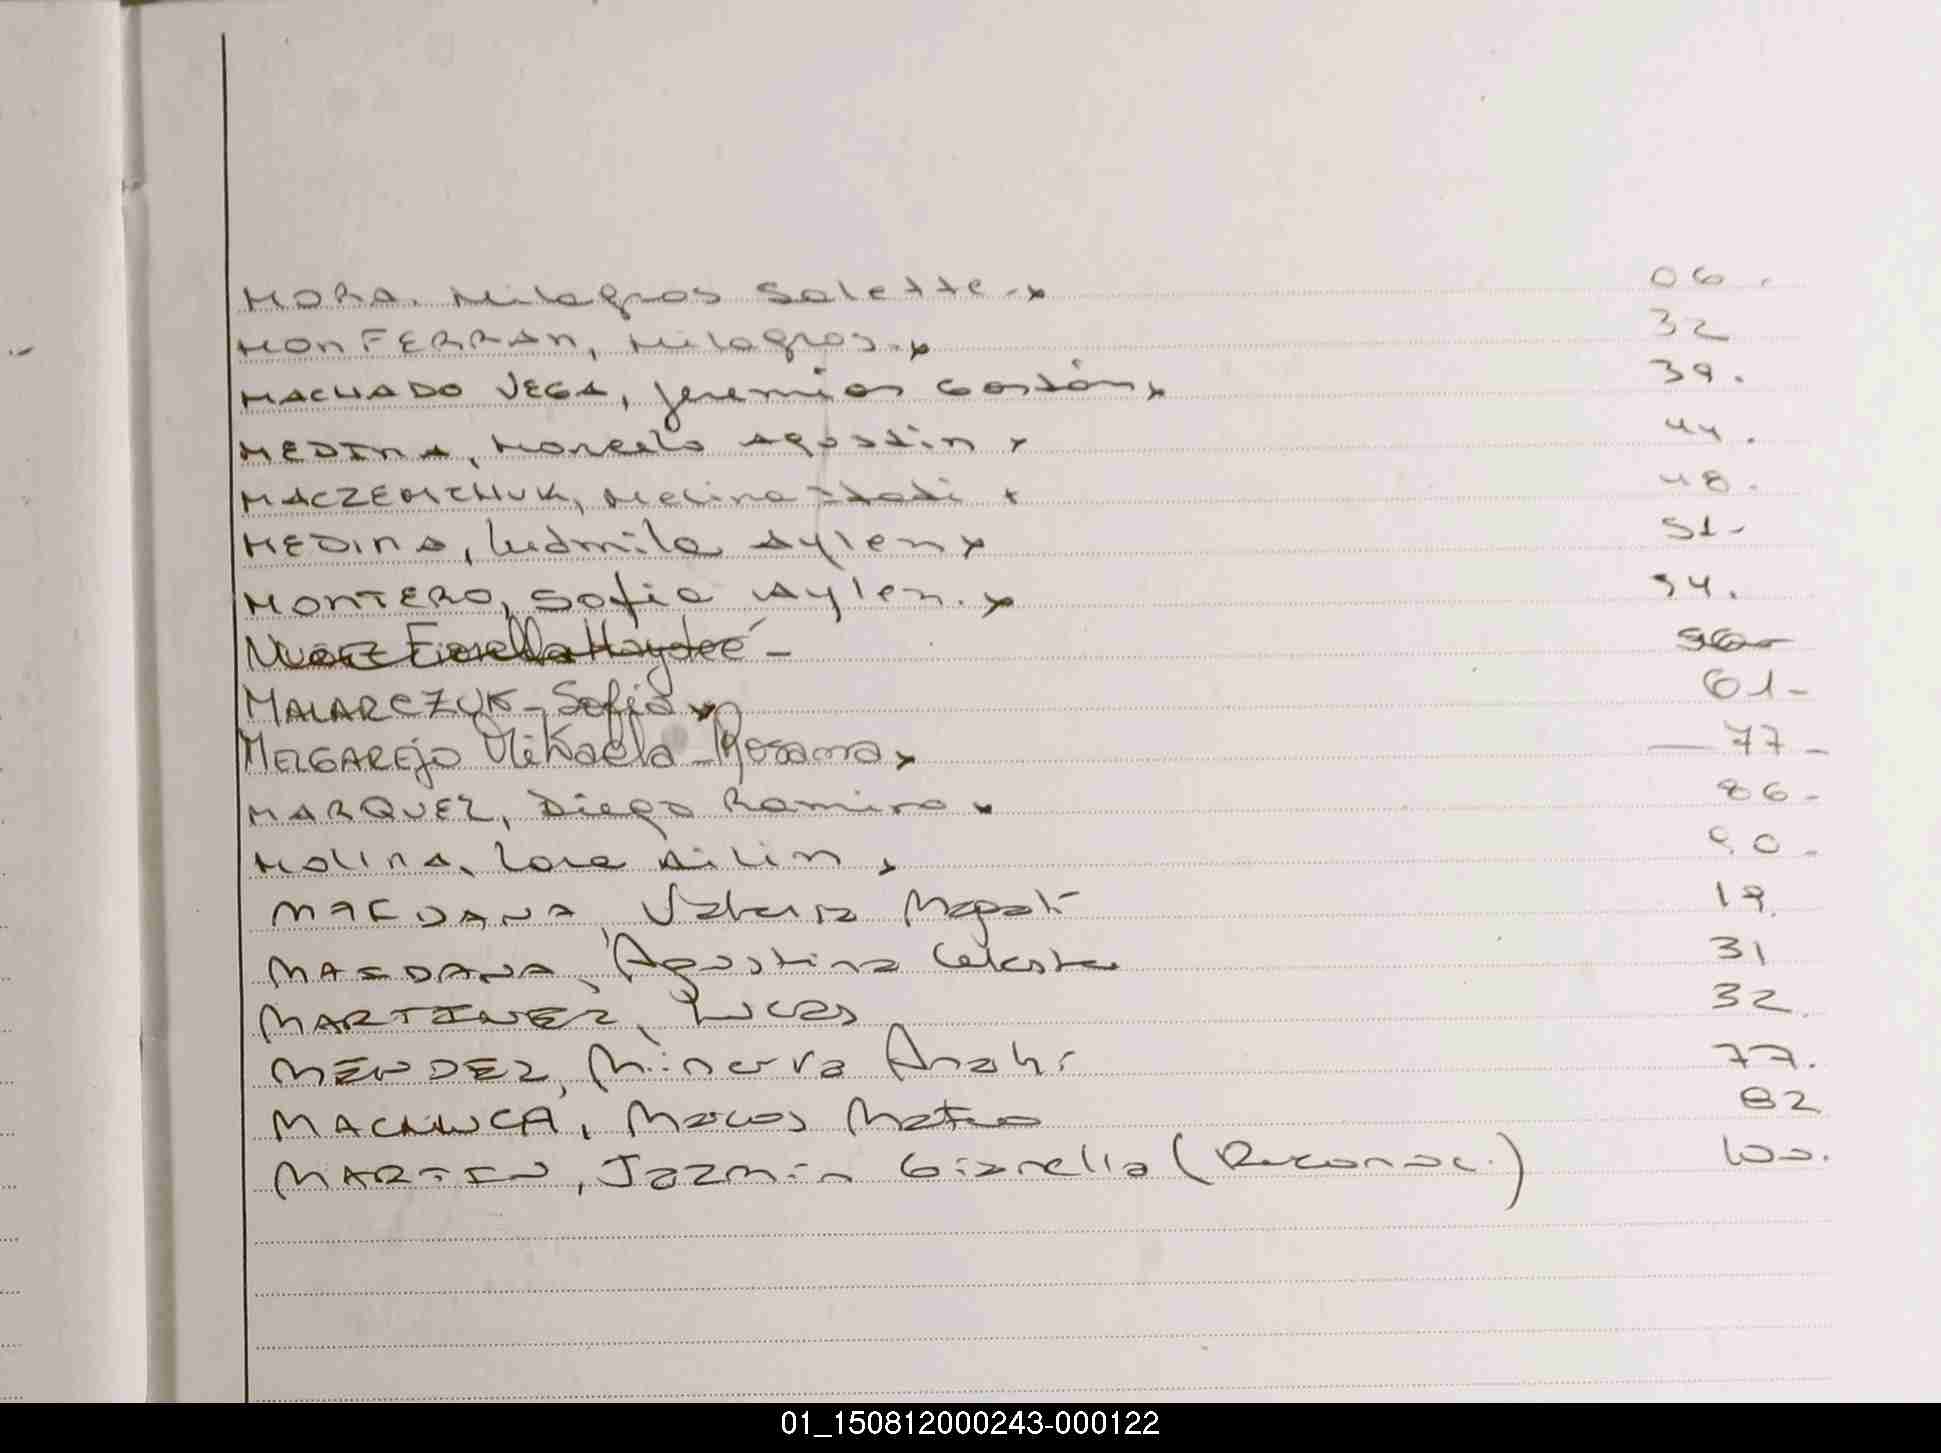 MORA. Milagros Salette.x 06.
MONFERRAN, Milagros.x 32
MACHADO VEGA, Jeremias Gastón x 39.
MEDINA, Marcelo Agustin x 44.
MACZEMCHUK, Melina x 48.
MEDINA, Ludmila Aylen x 51-
MONTERO, Sofia Aylen.x 54.
Nuñez Fiorella Haydeé - 56-
MALARCZUK - Sofia x 61-
MELGAREJO Mikaela Rosana x - 77 -
MARQUEZ, Diego Ramiro x 86-
MOLINA, Lara Ailin x 90-
MAIDANA, Valeria Magali 19.
MAIDANA, Agustina Celeste 31
MARTINEZ, Lucas 32.
MENDEZ, Minerva Anahi 77.
MACHUCA, Marcos Mateo 82
MARTIN, Jazmin Gianella (Reconoc.) 100.
01_150812000243-000122